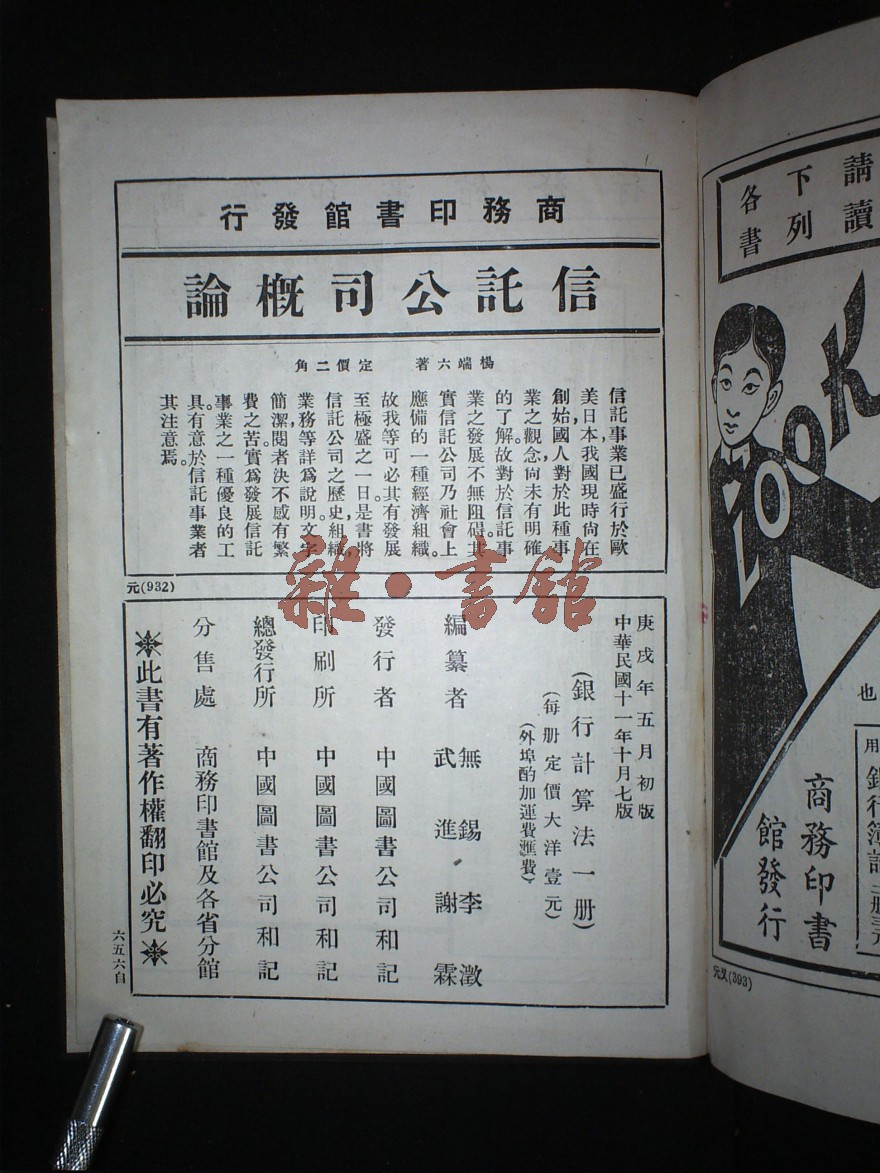 商務印書館發行
信託公司概論
楊端六著 定價二角
信託事業已盛行於歐
美日本我國現時尚在
創始國人對於此種事
業之觀念尚未有明確
的了解故對於信託事
業之發展不無阻碍其
實信託公司乃社會上
應備的一種經濟組織。
故我等可必其有發展
至極盛之一日是書將
信託公司之歷史組織,
業務等詳爲說明文字
簡潔閱者決不感有繁
費之苦實爲發展信託
事業之一種優良的工
具。有意於信託事業者
其注意焉。
元(932)
庚戌年五月初版
中華民國十一年十月七版
(銀行計算法一册)
(每册定價大洋壹元)
(外埠酌加運費滙費)
編纂者 無錫李澂
武進謝霖
發行者 中國圖書公司和記
印刷所 中國圖書公司和記
總發行所 中國圖書公司和記
分售處 商務印書館及各省分館
此書有著作權翻印必究
六五六自
雜·書館
請讀
下列
各書
LOOK
也
商務印書
館發行
元又(393)